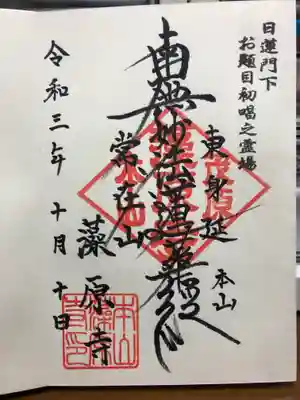 日蓮門下
お題目初唱之霊場
東身延
本山
南無妙法蓮華経
常在山
藻原寺
令和三年 十月十日